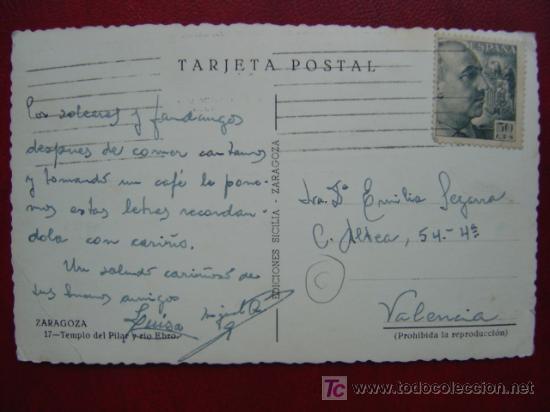 TARJETA POSTAL
ESPAÑA
50
CTS
Los soleares y fandangos
despues de comer cantamos
y tomando un café le pone-
mos estas letras recordan-
dola con cariño.
Un saludo cariñoso de
sus buenos amigos
Luisa
EDICIONES SICILIA - ZARAGOZA
Sra. Dª Emilia Segarra
C. Altea, 54-4ª
Valencia
(Prohibida la reproducción)
ZARAGOZA
17-Templo del Pilar y río Ebro.
TC
todocoleccion
www.todocoleccion.net